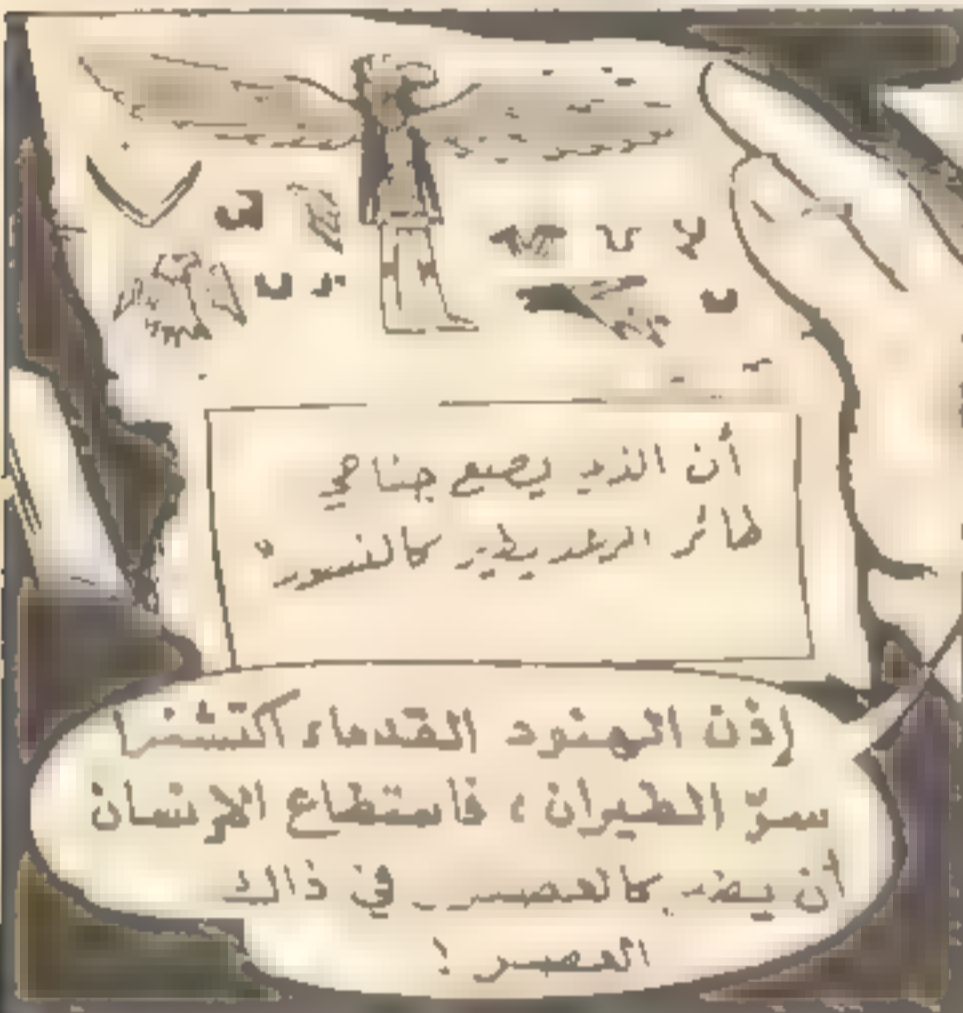 أن الذي يصنع جناحي
طائر الرعد يطير كالنسور"
إذن الهنود القدماء اكتشفوا
سرّ الطيران، فاستطاع الإنسان
أن كالعصـ في ذلك
العصر!